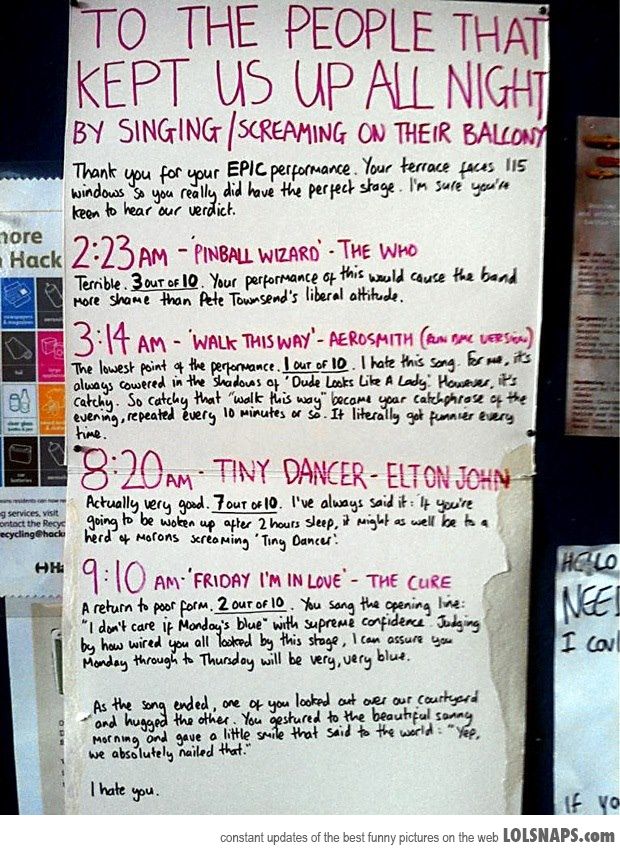 TO THE PEOPLE THAT
KEPT US UP ALL NIGHT
BY SINGING/SCREAMING ON THEIR BALCONY
Thank you for your EPIC performance. Your terrace faces 115
windows so you really did have the perfect stage. I'm sure you're
keen to hear our verdict.
2:23AM - 'PINBALL WIZARD' - THE WHO
Terrible. 3 OUT OF 10. Your performance of this would cause the band
more shame than Pete Townsend's liberal attitude.
3:14 AM - 'WALK THIS WAY' - AEROSMITH (RUN DMC VERSION)
The lowest point of the performance. 1 OUT OF 10. I hate this song. For me, it's
always cowered in the shadows of 'Dude Looks Like A Lady'. However, it's
catchy. So catchy that "walk this way" became your catchphrase of the
evening, repeated every 10 minutes or so. It literally got funnier every
time.
8:20AM - TINY DANCER - ELTON JOHN
Actually very good. 7 OUT OF 10. I've always said it: 'If you're
going to be woken up after 2 hours sleep, it might as well be to a
herd of morons screaming 'Tiny Dancer'.
9:10 AM - 'FRIDAY I'M IN LOVE' - THE CURE
A return to poor form. 2 OUT OF 10. You sang the opening line:
"I don't care if Monday's blue" with supreme confidence. Judging
by how wired you all looked by this stage, I can assure you
Monday through to Thursday will be very, very blue.
As the song ended, one of you looked out over our courtyard
and hugged the other. You gestured to the beautiful sunny
morning and gave a little smile that said to the world: "Yep,
we absolutely nailed that."
I hate you.
more
Hack
g services, visit
ontact the Recyc
ecycling@hack
HELLO
NEE
I cou
If yo
constant updates of the best funny pictures on the web LOLSNAPS.com